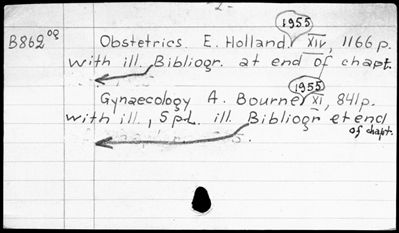 - 2 -
1955
B862 09 Obstetrics. E. Holland. XIV, 1166 p.
with ill. Bibliogr. at end of chapt.
1955
Gynaecology A. Bourne XI, 841p.
with ill., 5 pl. ill. Bibliogr et end
of chapt.